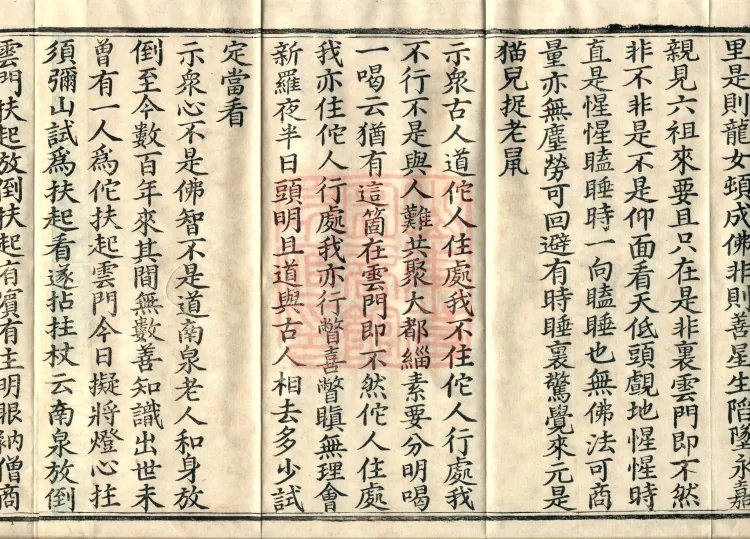 里是則龍女頓成佛非則善星生陷墜永嘉
親見六祖來要且只在是非裏雲門即不然
非不非是不是仰面看天低頭覷地惺惺時
直是惺惺瞌睡時一向瞌睡也無佛法可商
量亦無塵勞可回避有時睡裏驚覺來元是
猫兒捉老鼠
示衆古人道佗人住處我不住佗人行處我
不行不是與人難共聚大都緇素要分明喝
一喝云猶有這箇在雲門即不然佗人住處
我亦住佗人行處我亦行瞥喜瞥瞋無理會
新羅夜半日頭明且道與古人相去多少試
定當看
示衆心不是佛智不是道南泉老人和身放
倒至今數百年來其間無數善知識出世未
曾有一人爲佗扶起雲門今日擬將燈心拄
須彌山試爲扶起看遂拈拄杖云南泉放倒
雲門扶起放倒扶起有賓有主明眼衲僧商